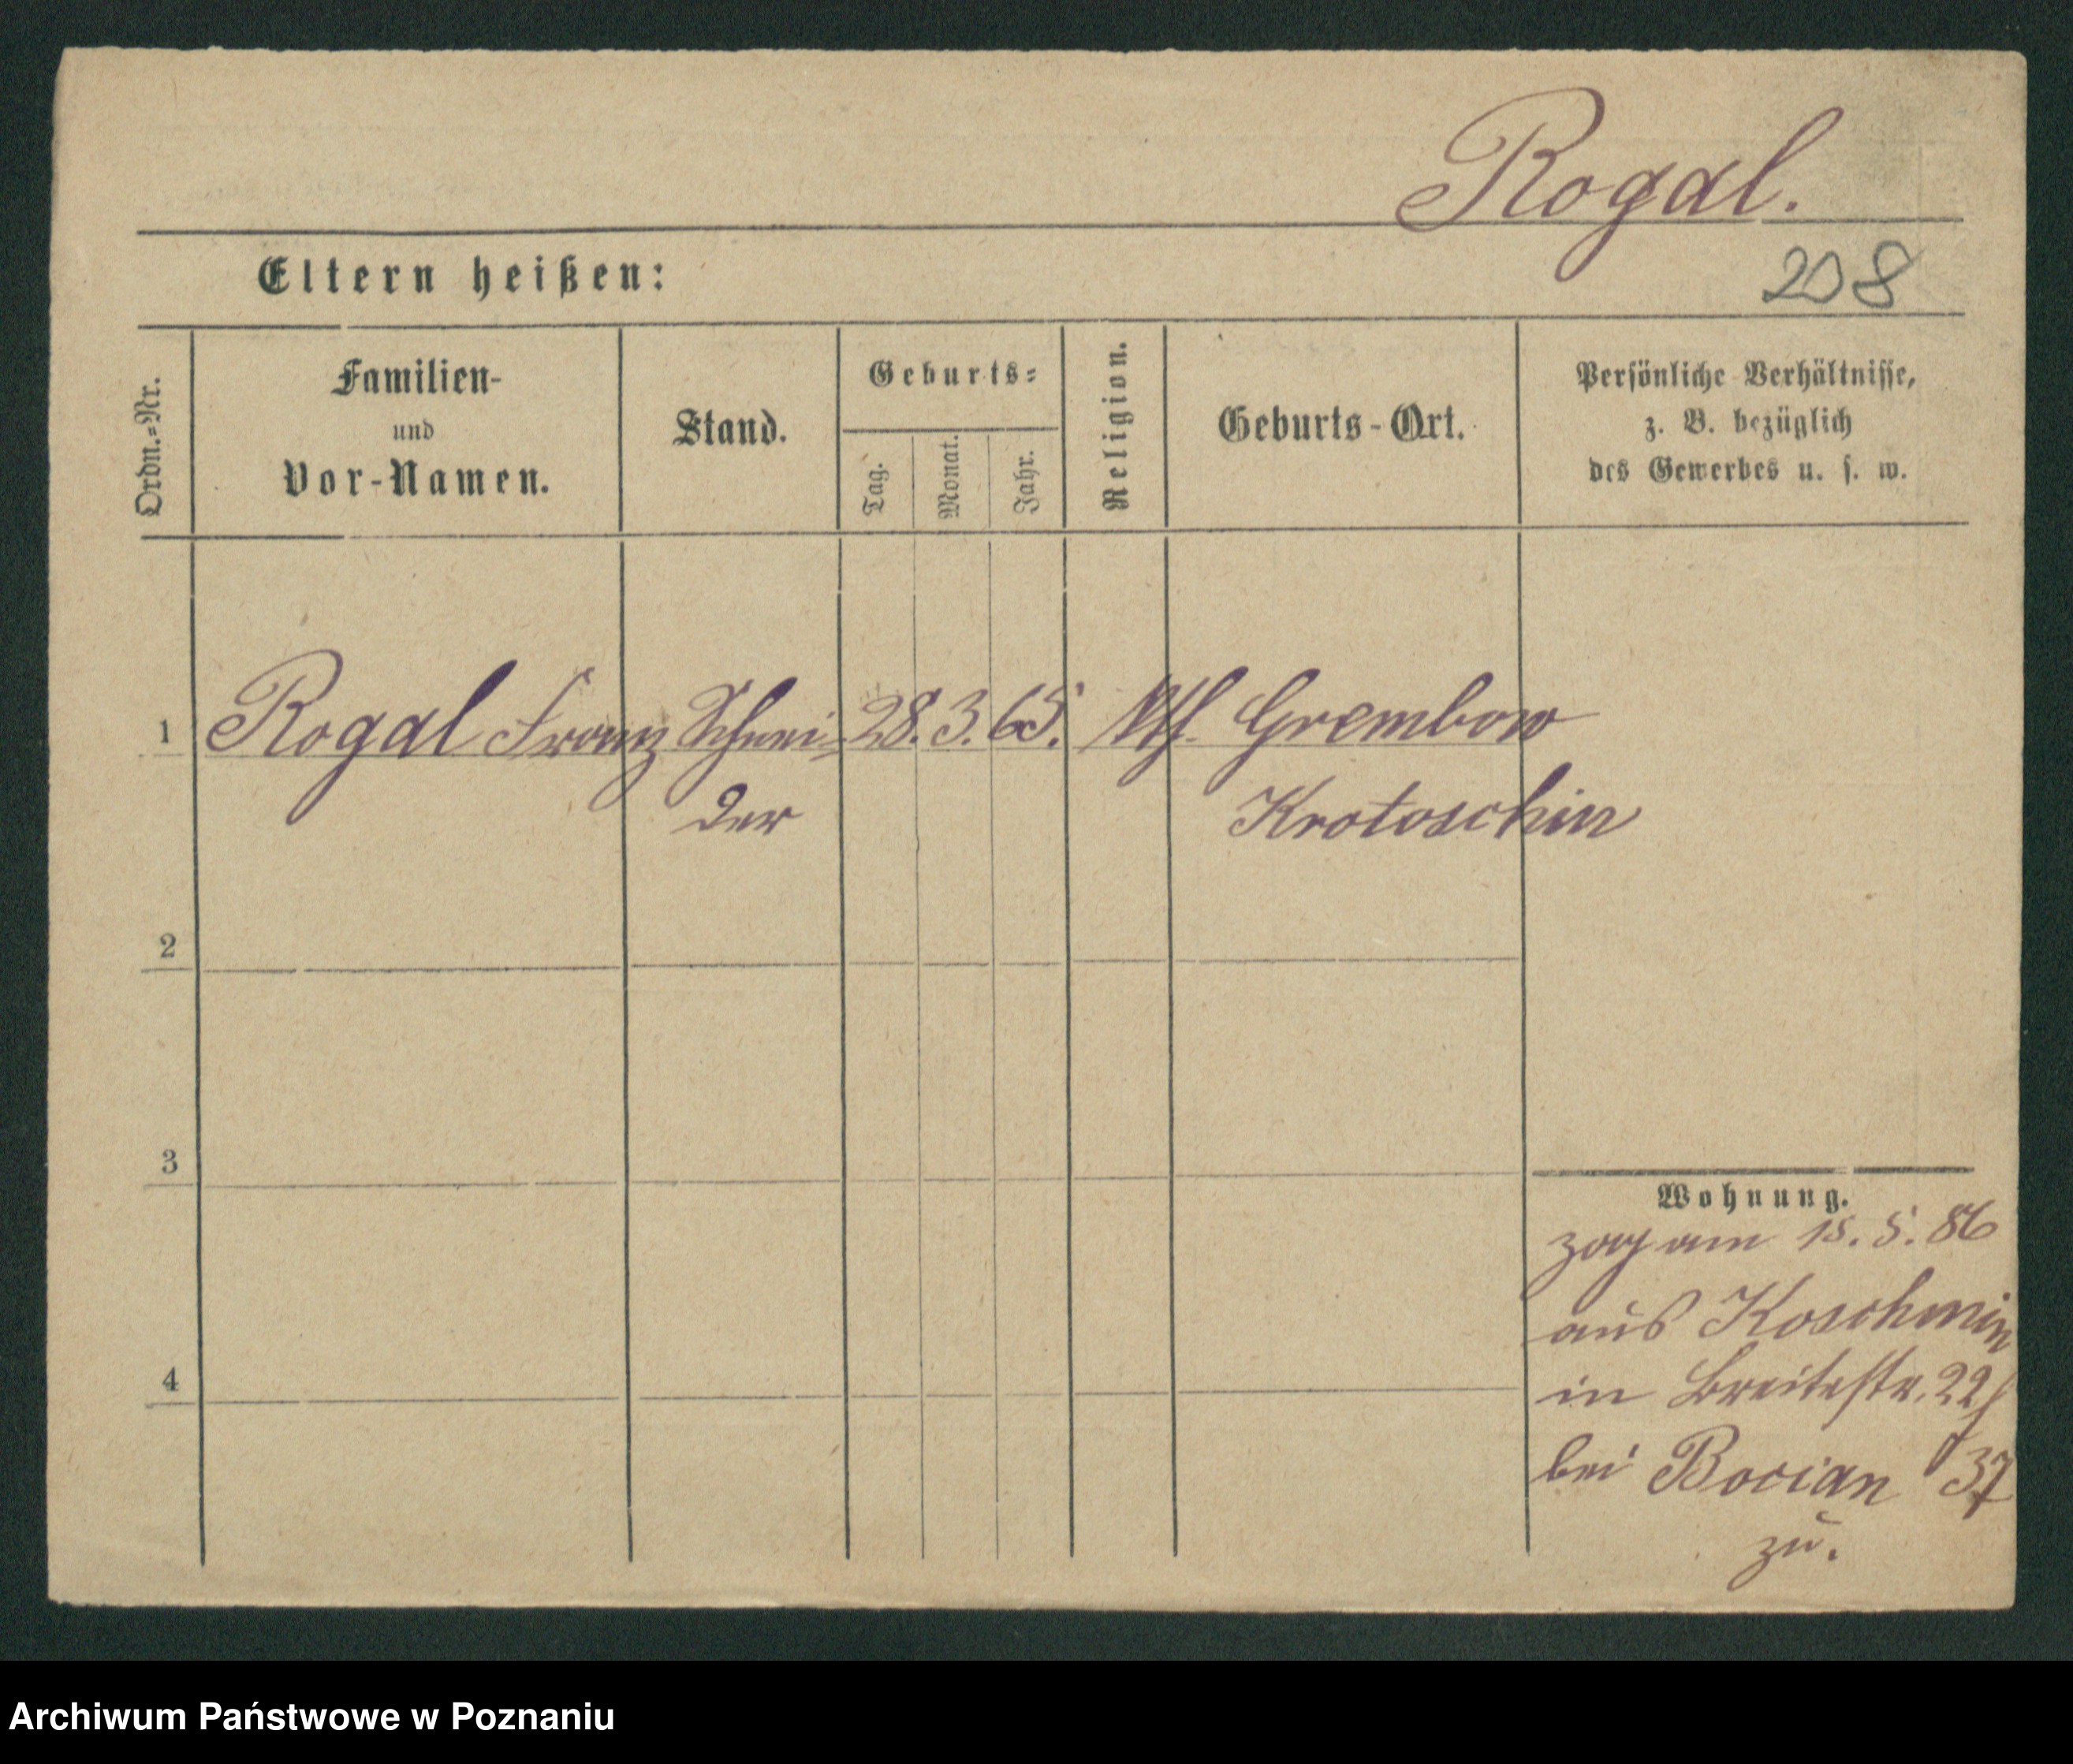 Rogal.
Eltern heißen:
208
Ordn.=Nr.
Familien-
und
Vor-Namen.
Stand.
Geburts=
Tag.
Monat.
Jahr.
Religion.
Geburts-Ort.
Persönliche Verhältnisse,
z. B. bezüglich
des Gewerbes u. s. w.
1 Rogal Franz Schnei= 28. 3. 65. Grembow
der Krotoschin
2
3
4
Wohnung.
zog am 15. 5. 86
aus Koschmin
in Breitestr. 22
bei Bocian 37
zu.
Archiwum Państwowe w Poznaniu